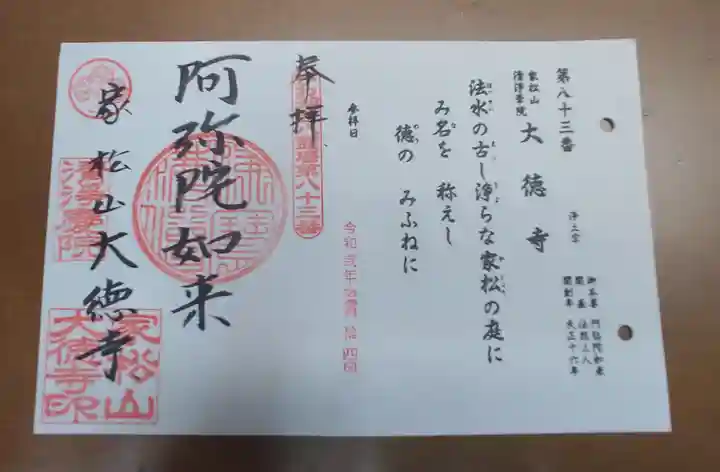 第八十三番
家松山
清浄華院
大徳寺
浄土宗
御本尊 阿弥陀如来
開基 法懿上人
開創年 天正十六年
法水の古し浄らな家松の庭に
み名を 称えし
徳の みふねに
参拝日
奉拝
第八十三番
令和弐年
拾四日
阿弥陀如来
家松山大徳寺
清浄華院
家松山
大徳寺印